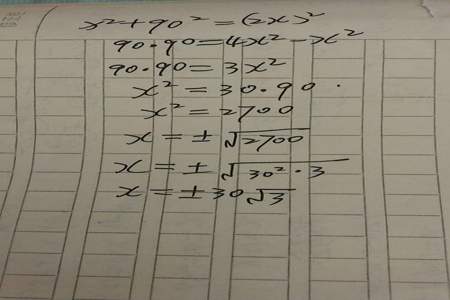 x² + 90² = (2x)²
90·90 = 4x² - x²
90·90 = 3x²
x² = 30·90
x² = 2700
x = ± √2700
x = ± √30²·3
x = ± 30√3